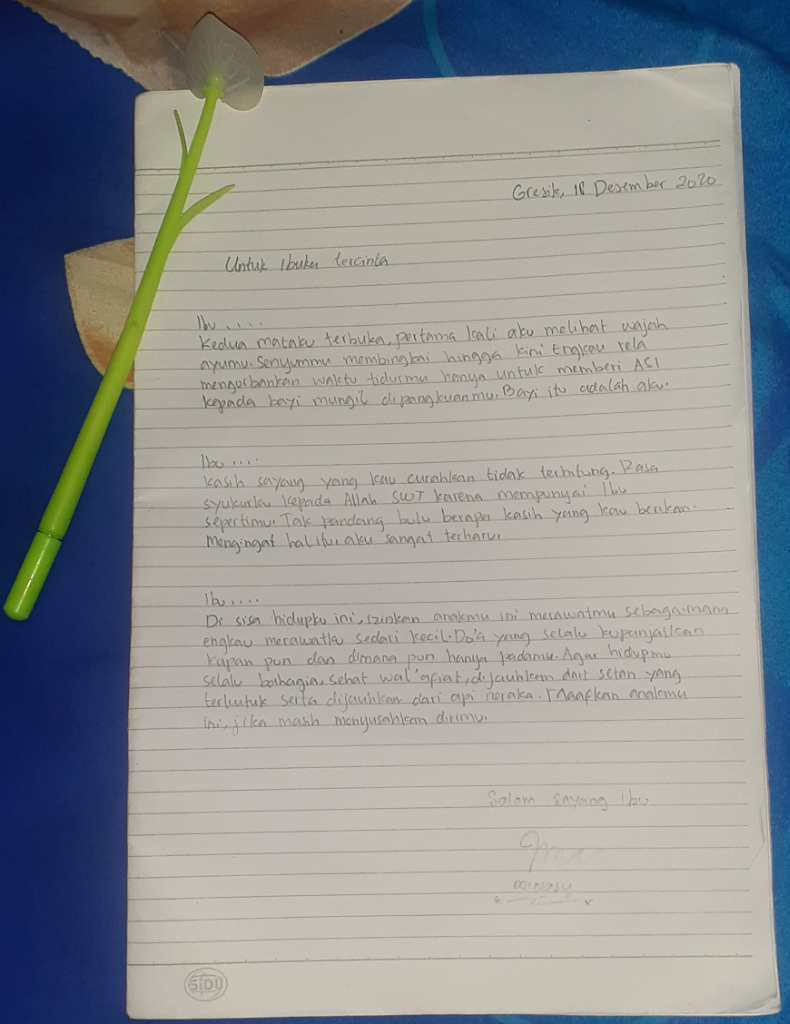 Gresik, 18 Desember 2020
Untuk Ibuku tercinta
Ibu....
Kedua mataku terbuka, pertama kali aku melihat wajah
ayumu. Senyummu membingkai hingga kini Engkau rela
mengorbankan waktu tidurmu hanya untuk memberi ASI
kepada bayi mungil dipangkuanmu. Bayi itu adalah aku.
Ibu....
Kasih sayang yang kau curahkan tidak terhitung. Rasa
syukurku kepada Allah SWT karena mempunyai Ibu
sepertimu. Tak pandang bulu berapa kasih yang kau berikan.
Mengingat hal itu, aku sangat terharu.
Ibu....
Di sisa hidupku ini, izinkan anakmu ini merawatmu sebagaimana
engkau merawatku sedari kecil. Do'a yang selalu kupanjatkan
kapan pun dan dimana pun hanya padamu. Agar hidupmu
selalu bahagia, sehat wal'afiat, dijauhkan dari setan yang
terkutuk serta dijauhkan dari api neraka. Maafkan anakmu
ini, jika masih menyusahkan dirimu.
Salam sayang Ibu
SiDU